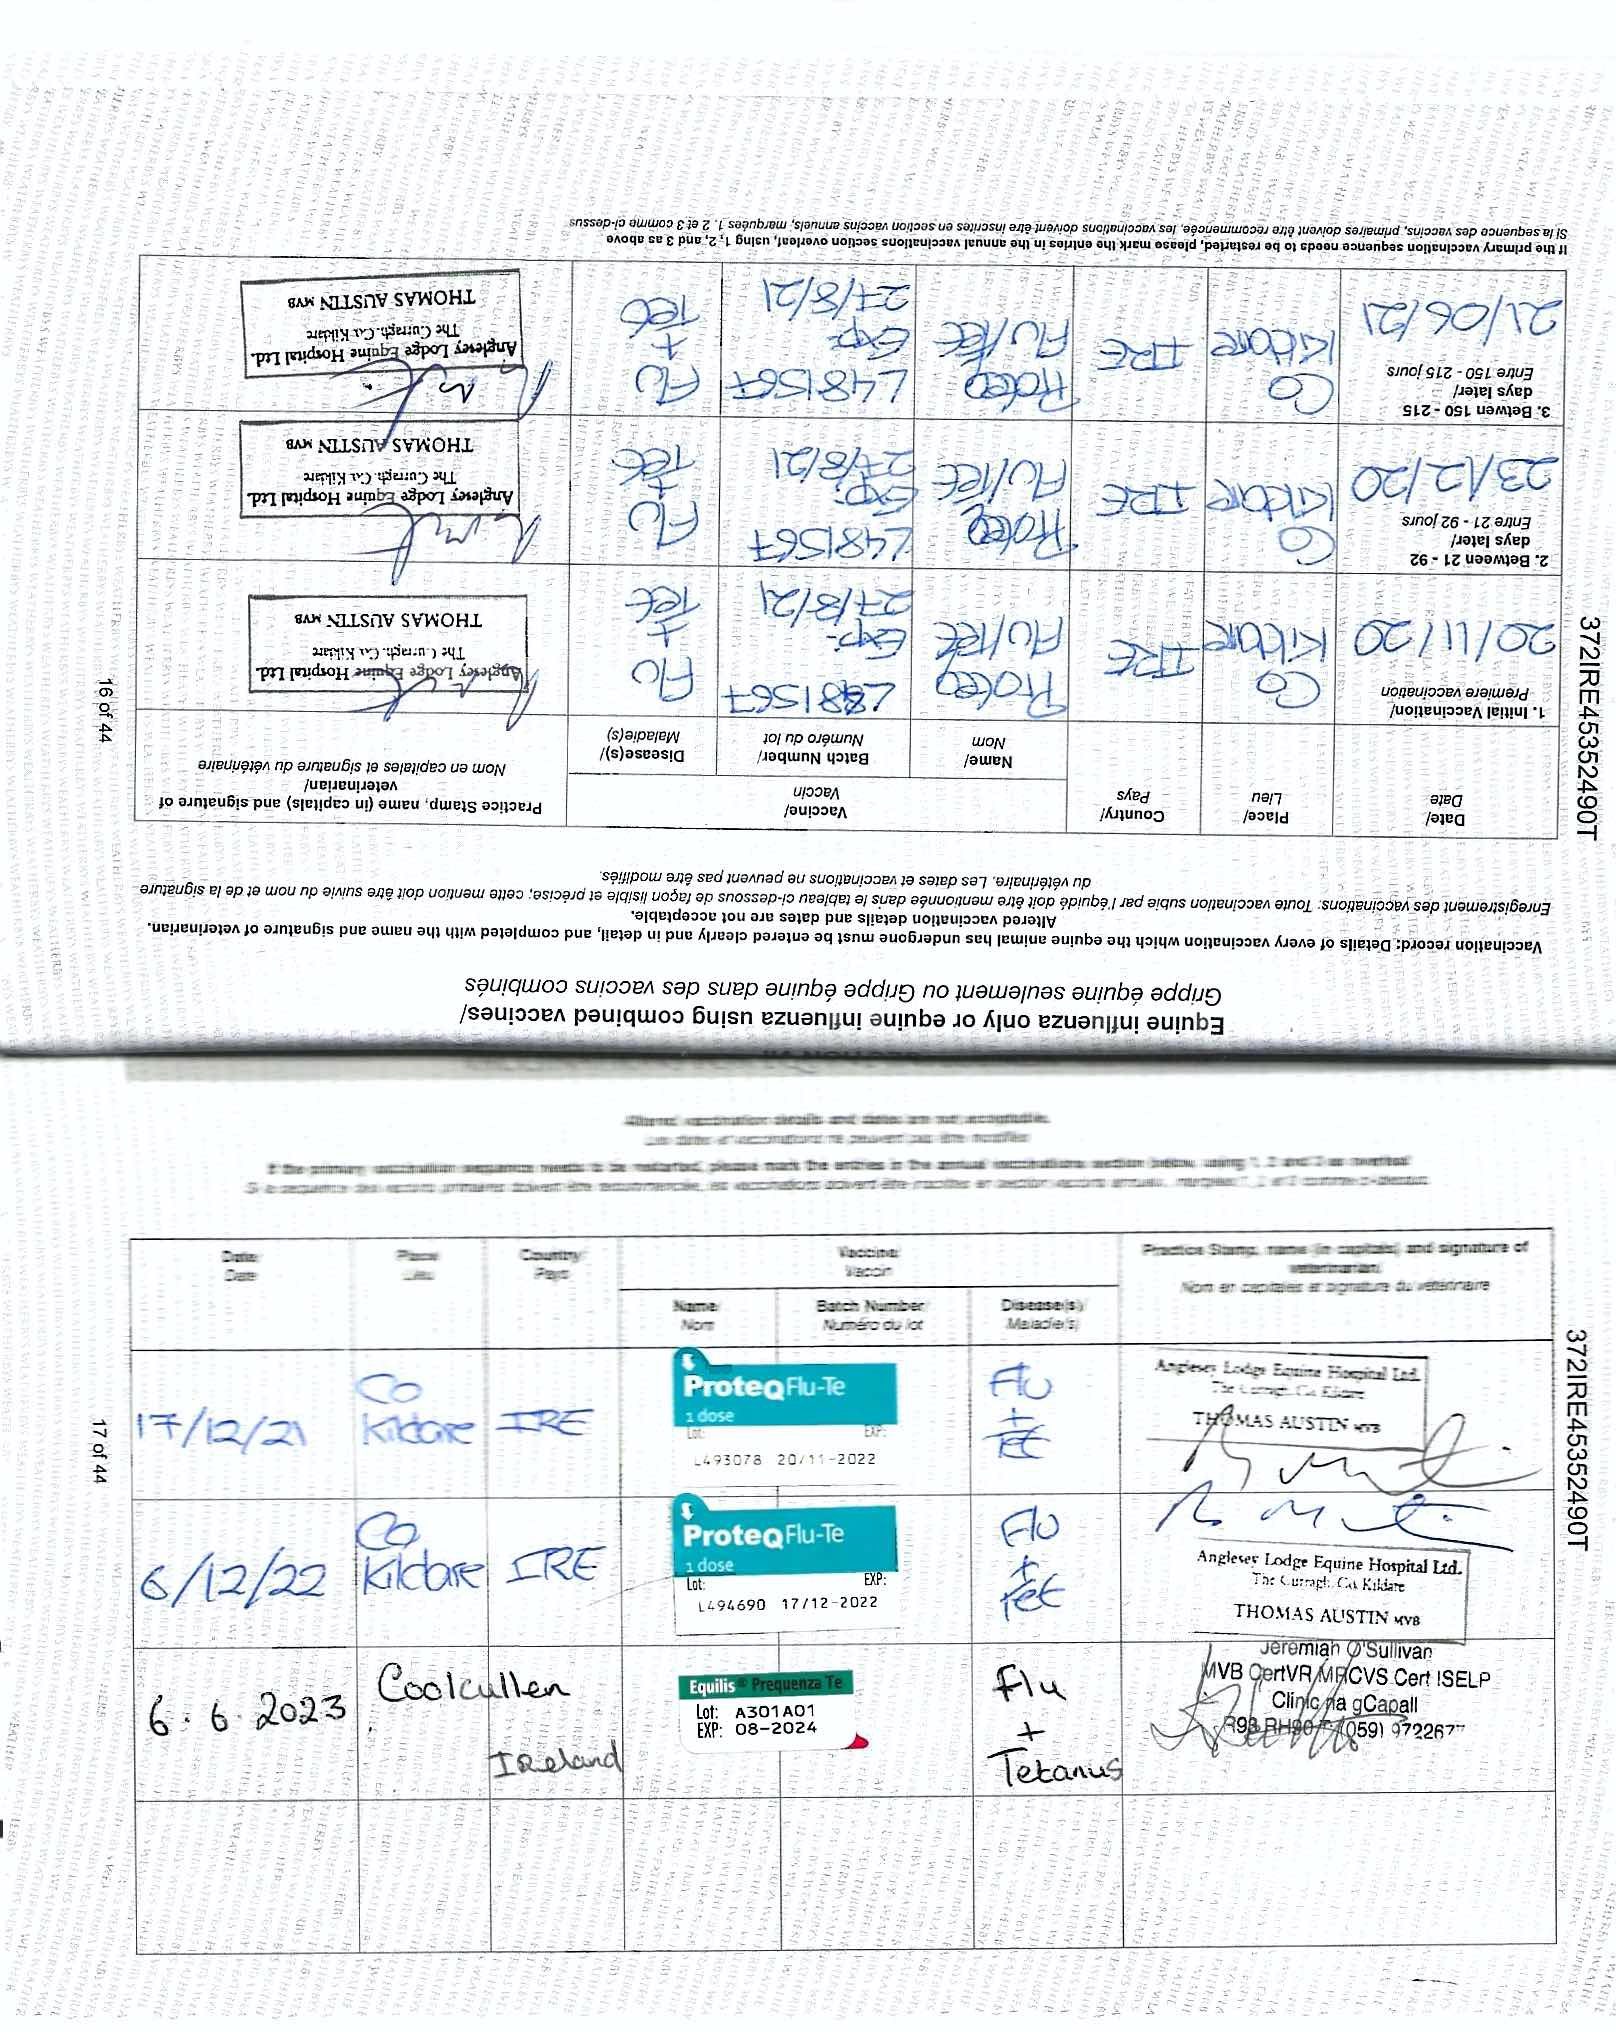 Equine influenza only or equine influenza using combined vaccines/
Grippe équine seulement ou Grippe équine dans des vaccins combinés
Vaccination record: Details of every vaccination which the equine animal has undergone must be entered clearly and in detail, and completed with the name and signature of veterinarian.
Altered vaccination details and dates are not acceptable.
Enregistrement des vaccinations: Toute vaccination subie par l'équidé doit être mentionnée dans le tableau ci-dessous de façon lisible et précise; cette mention doit être suivie du nom et de la signature
du vétérinaire. Les dates et vaccinations ne peuvent pas être modifiés.
Date/
Date
Place/
Lieu
Country/
Pays
Vaccine/
Vaccin
Name/
Nom
Batch Number/
Numéro du lot
Disease(s)/
Maladie(s)
Practice Stamp, name (in capitals) and signature of
veterinarian/
Nom en capitales et signature du vétérinaire
1. Initial Vaccination/
Première vaccination
20/11/20
Co
Kildare
IRE
Proteq
Flu/Tet
L481567
Exp:
27/8/21
Flu
+
Tet
Anglesey Lodge Equine Hospital Ltd.
The Curragh. Co. Kildare
THOMAS AUSTIN MVB
2. Between 21 - 92
days later/
Entre 21 - 92 jours
23/12/20
Co
Kildare
IRE
Proteq
Flu/Tet
L481567
Exp:
27/8/21
Flu
+
Tet
Anglesey Lodge Equine Hospital Ltd.
The Curragh. Co. Kildare
THOMAS AUSTIN MVB
3. Betwen 150 - 215
days later/
Entre 150 - 215 jours
21/06/21
Co
Kildare
IRE
Proteq
Flu/Tet
L481567
Exp:
27/8/21
Flu
+
Tet
Anglesey Lodge Equine Hospital Ltd.
The Curragh. Co. Kildare
THOMAS AUSTIN MVB
If the primary vaccination sequence needs to be restarted, please mark the entries in the annual vaccinations section overleaf, using 1, 2, and 3 as above
Si la sequence des vaccins, primaires doivent être recommencée, les vaccinations doivent être inscrites en section vaccins annuels, marquées 1, 2 et 3 comme ci-dessus
372IRE45352490T
16 of 44
Altered vaccination details and dates are not acceptable.
Les dates et vaccinations ne peuvent pas être modifiés
If the primary vaccination sequence needs to be restarted, please mark the entries in the annual vaccinations section below, using 1, 2 and 3 as
Date/
Date
Place/
Lieu
Country/
Pays
Vaccine/
Vaccin
Name/
Nom
Batch Number/
Numéro du lot
Disease(s)/
Maladie(s)
Practice Stamp, name (in capitals) and signature of
veterinarian/
Nom en capitales et signature du vétérinaire
17/12/21
Co
Kildare
IRE
ProteqFlu-Te
1 dose
Lot: EXP:
L493078 20/11-2022
Flu
+
Tet
Anglesey Lodge Equine Hospital Ltd.
The Curragh. Co. Kildare
THOMAS AUSTIN MVB
6/12/22
Co
Kildare
IRE
ProteqFlu-Te
1 dose
Lot: EXP:
L494690 17/12-2022
Flu
+
Tet
Anglesey Lodge Equine Hospital Ltd.
The Curragh. Co. Kildare
THOMAS AUSTIN MVB
6.6.2023
Coolcullen
Ireland
Equilis® Prequenza Te
Lot: A301A01
EXP: 08-2024
Flu
+
Tetanus
Jeremiah O'Sullivan
MVB CertVR MRCVS Cert ISELP
Clinic na gCapall
372IRE45352490T
17 of 44